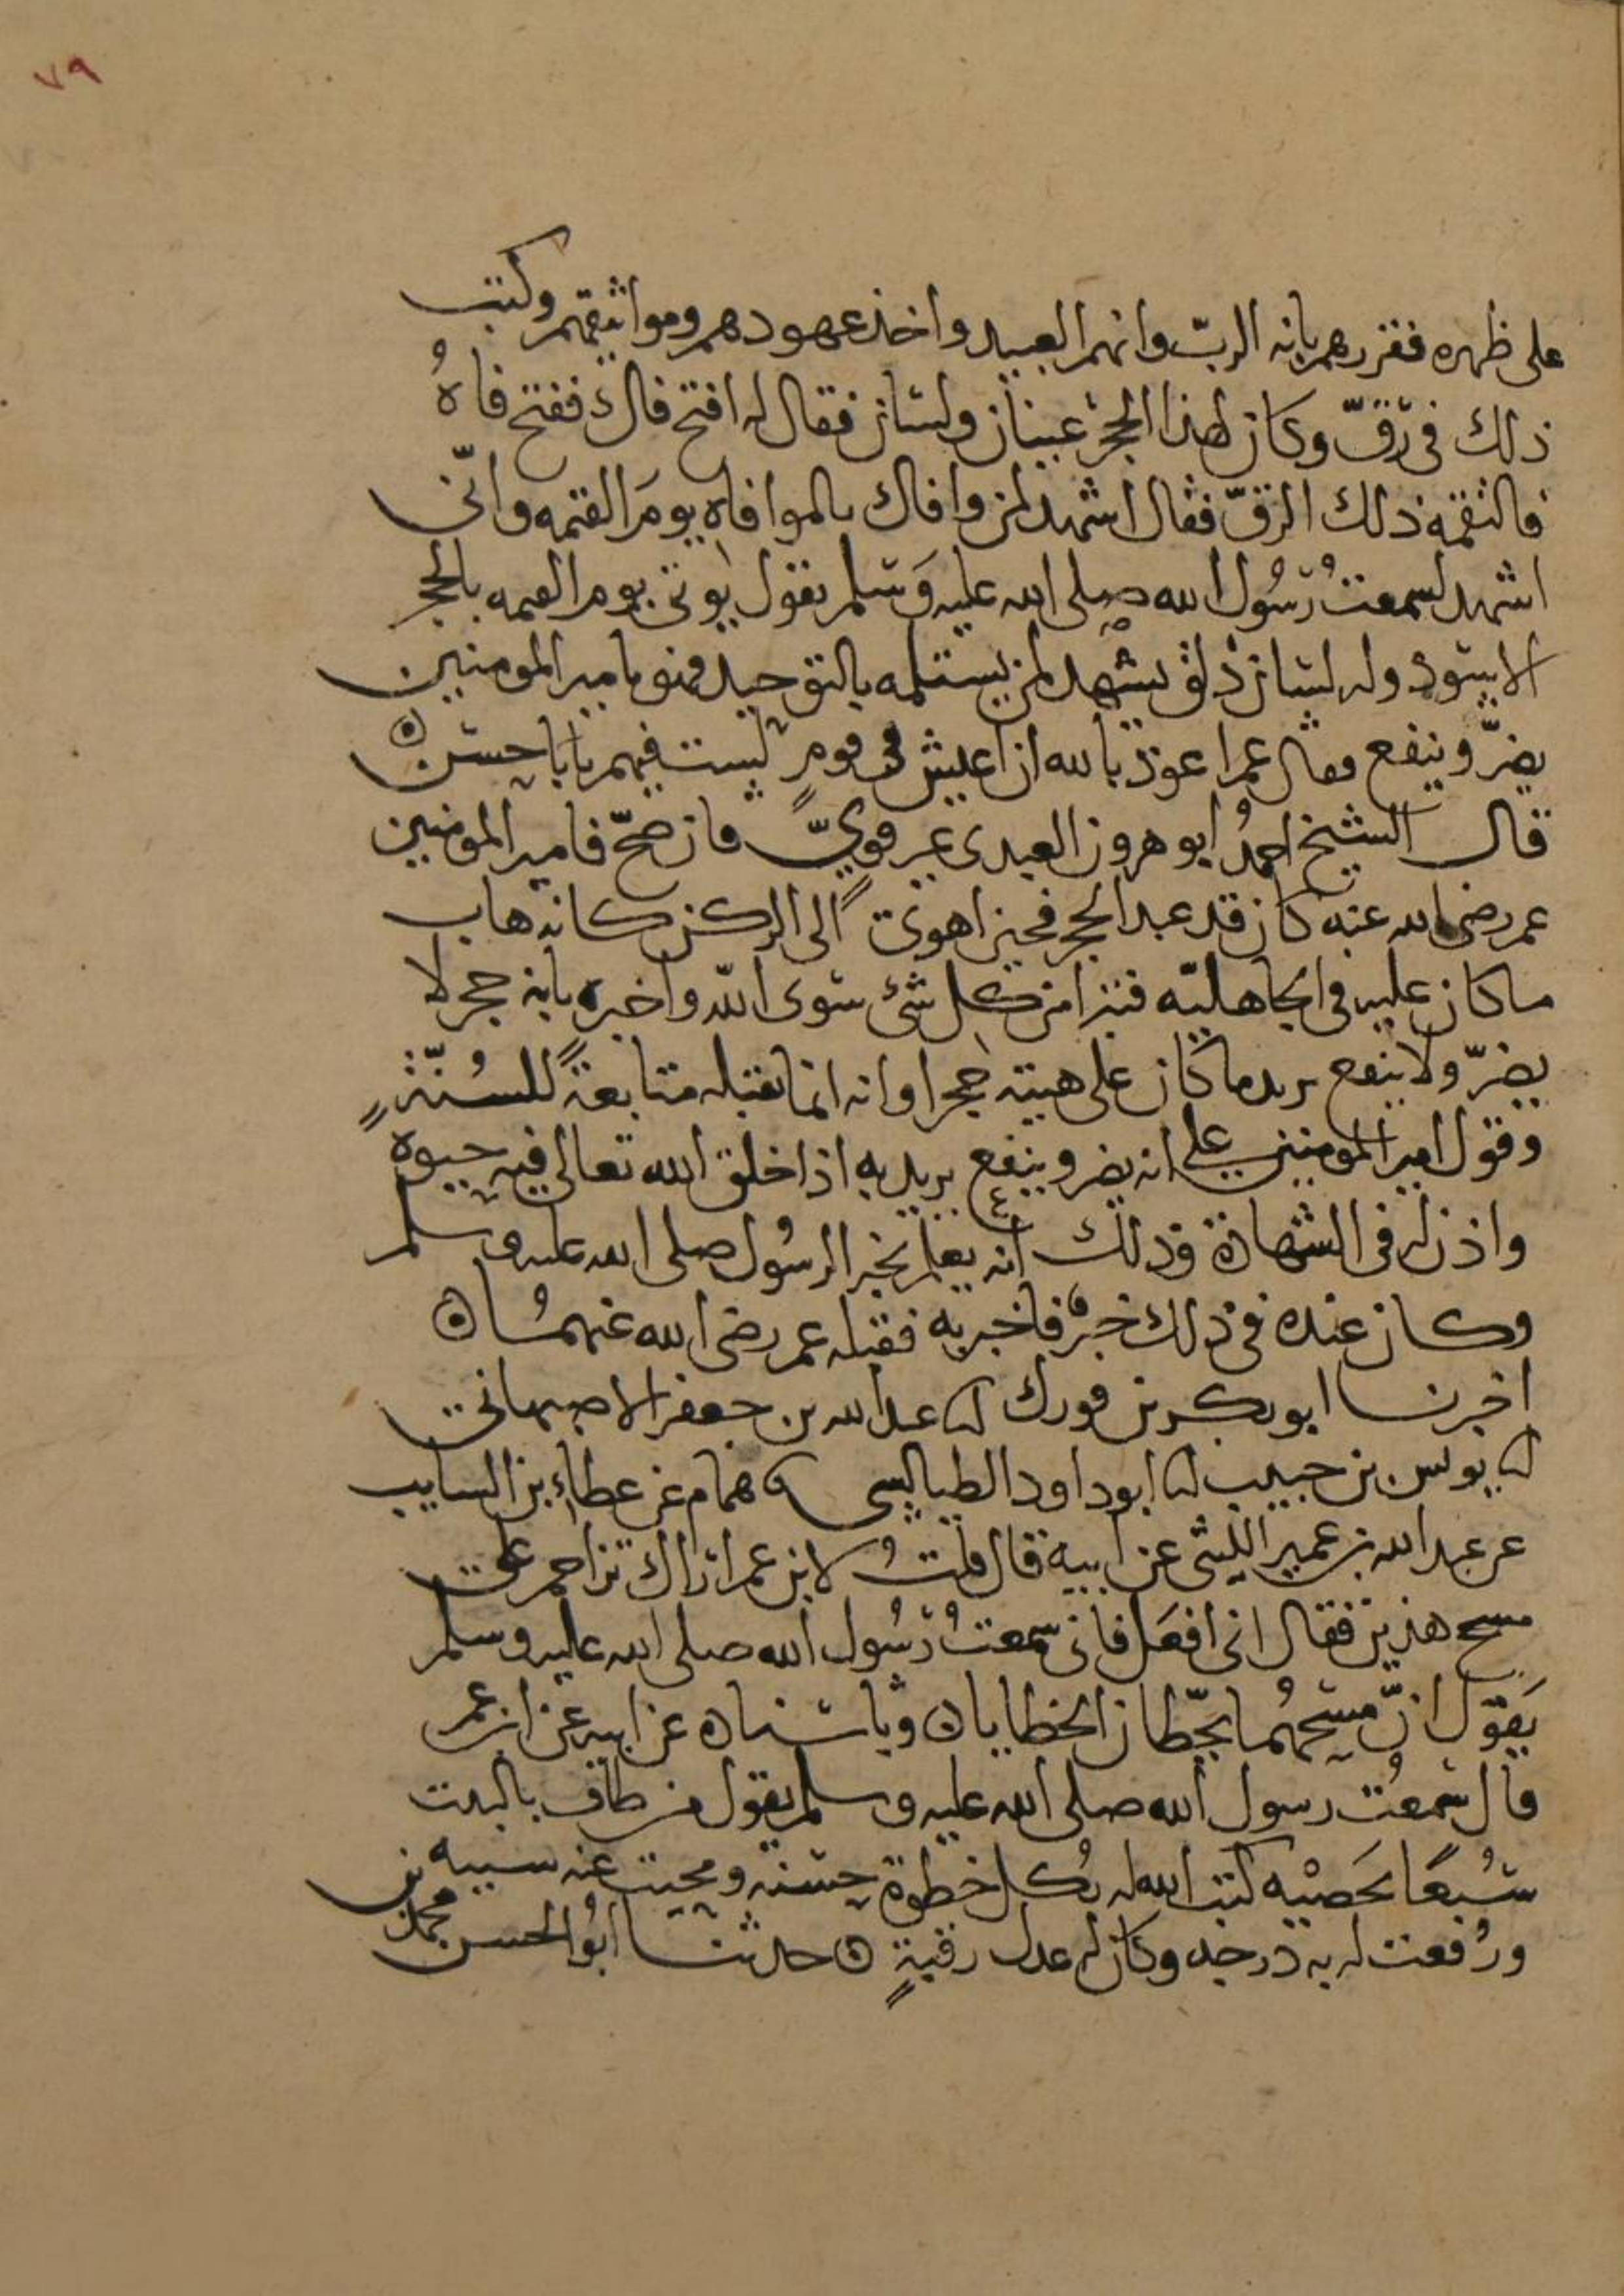 ٧٩
على ظهره فقررهم بانه الربّ وانهم العبيد واخذ عهودهم ومواثيقهم وكتب
ذلك في رَقّ وكان لهذا الحجر عينان ولسان فقال له افتح فاك ففتح فاهُ
فالتقمه ذلك الرقّ فقال اشهد لمن وافاك بالموافاه يومَ القيمه وانّى
اشهد لسمعتُ رسُول الله صلى الله عليه وَسلم يقول يوتى يوم القيمه بالحجر
الاسود وله لسان ذلق يشهد لمن يستلمه بالتوحيد فهو يا مير المومنين
يضرّ وينفع فقال عمر اعوذ بالله ان اعيش في قومٍ لست فيهم يابا حسن ۞
قال الشيخ احمدُ ابو هرون العبدى غير قويٍّ فان صحّ فامير المومنين
عمر رضى الله عنه كان قد عبد الحجر فحين اهوى الى الركن كانه هاب
ما كان عليه في الجاهليّه فتبرا من كل شئ سوى الله واخبره بانه حجر لا
يضرّ ولا ينفع يريد ما كان على هيئته حجرا وانه انما يقبله متابعةً للسُنّةِ
وقول امير المومنين علي انه يضر وينفع يريد به اذا خلق الله تعالى فيه حيوه
واذن له في الشهادة وذلك انه يعلم بخبر الرسُول صلى الله عليه وسلم
وكان عنده في ذلك خبرٌ فاخبر به فقبله عمر رضى الله عنهما ۞
اخبرنا ابو بكر بن فورك انا عبد الله بن جعفر الاصبهاني
نا يونس بن حبيب نا ابو داود الطيالسي نا همام عن عطاء بن السايب
عن عبد الله بن عمير الليثى عن ابيه قال قلتُ لابن عمر اراك تزاحم على
مسح هذين فقال انى افعل فانى سمعتُ رسُول الله صلى الله عليه وسلم
يَقوْل انّ مسحهُما يحطّان الخطايا ۞ وباسناده عن ابيه عن ابن عمر
قال سمعْت رسول الله صلى الله عليه وسلم يقول من طاف بالبيت
سُبعًا يحَصْيه كتب الله له بكُل خطوة حسنه ومحيت عنه سيئه
ورُفعت له به درجه وكان له عدل رقبةٍ ۞ حدثنا ابوُ الحسن محمد بن